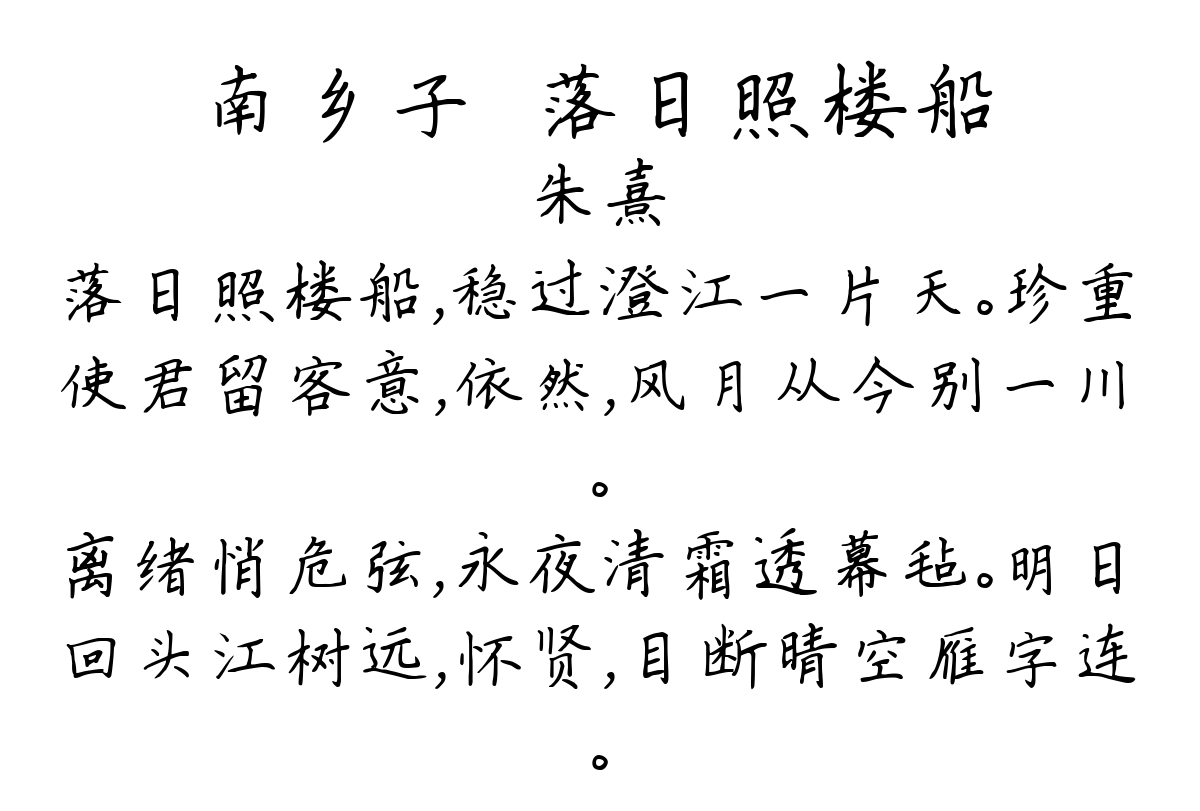 南乡子 落日照楼船
朱熹
落日照楼船,稳过澄江一片天。珍重
使君留客意,依然,风月从今别一川
。
离绪悄危弦,永夜清霜透幕毡。明日
回头江树远,怀贤,目断晴空雁字连
。